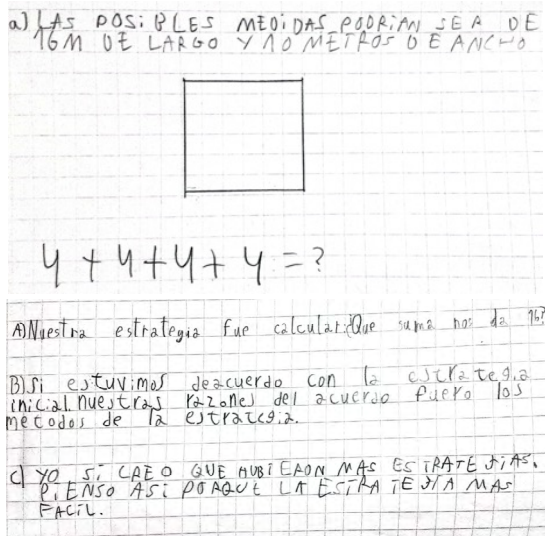 a) LAS POSiBLES MEDiDAS PODRIAN SER DE
16M DE LARGO Y 10 METROS DE ANCHO
4 + 4 + 4 + 4 = ?
A) Nuestra estrategia fue calcular:¿Que suma nos da 16?
B) Si estuvimos deacuerdo con la estrategia
inicial nuestras razones del acuerdo fuero los
metodos de la estrategia.
C) YO Si CREO QUE HUBIERON MAS ESTRATEJiAS.
PiENSO ASi PORQUE LA ESTRATEJIA MAS
FACiL.